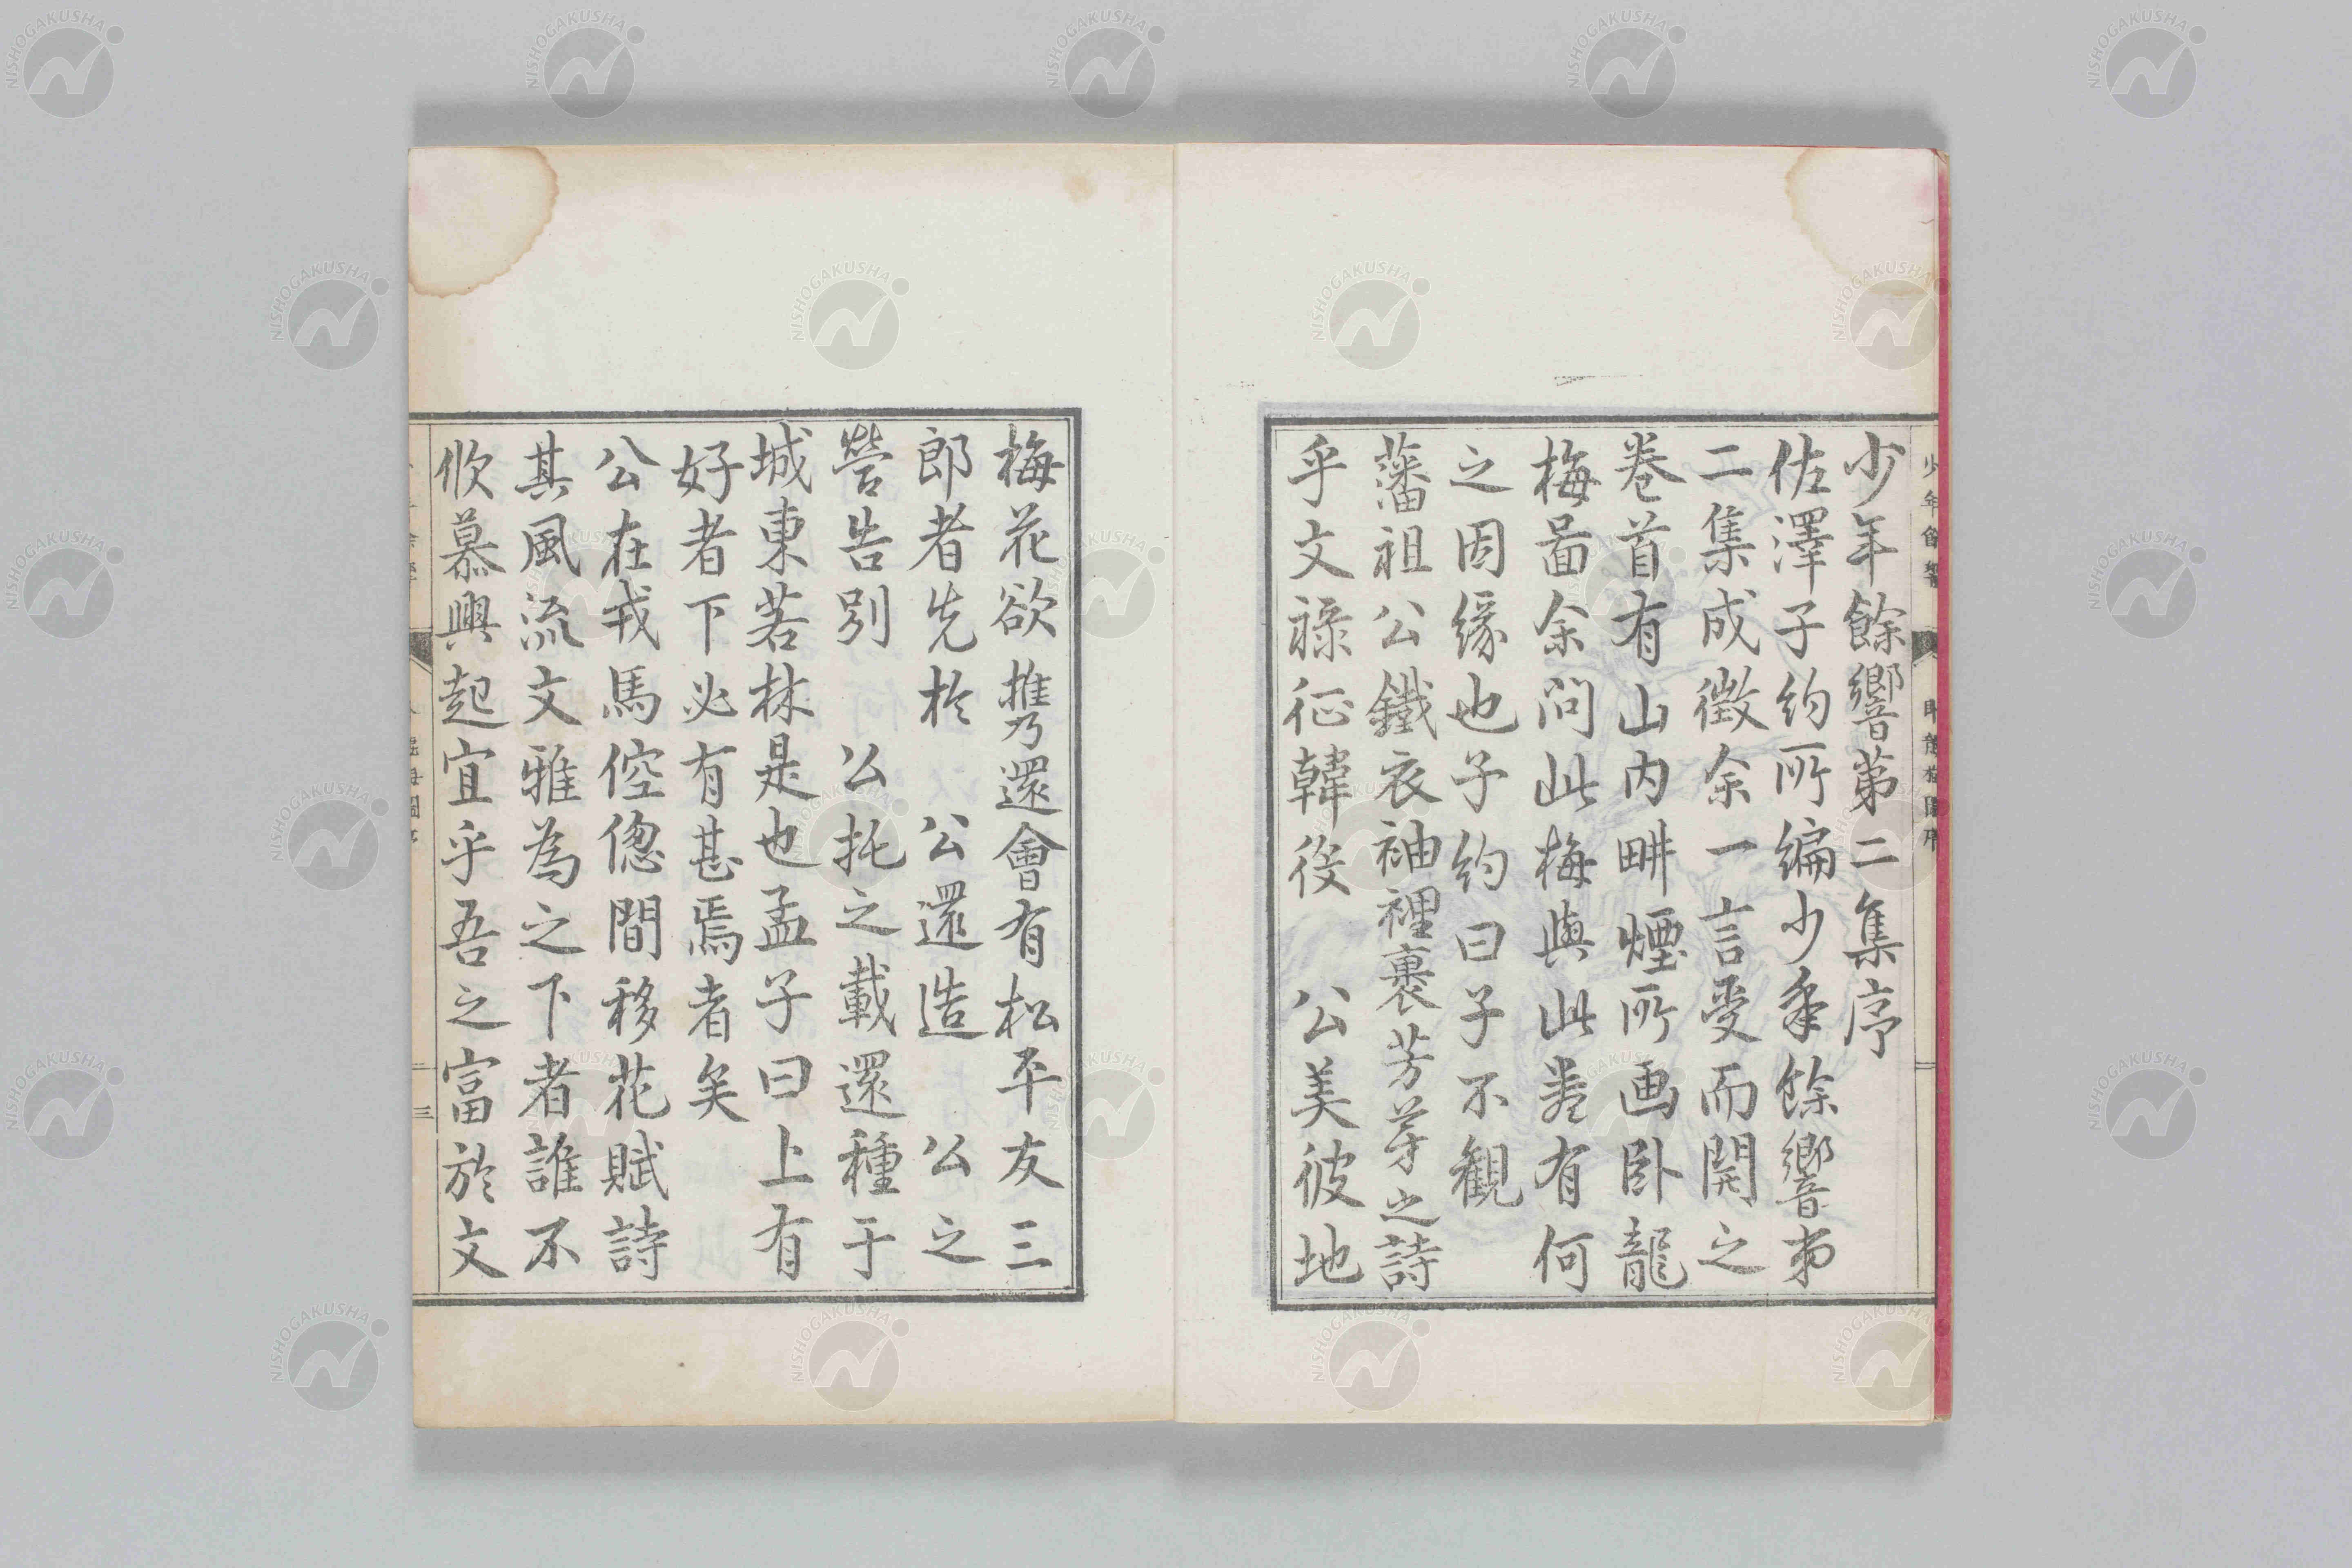 少年餘響第二集序
佐澤子約所編少年餘響第
二集成徴余一言受而開之
卷首有山内畊煙所画卧龍
梅啚余問此梅與此卷有何
之因縁也子約曰子不観
藩祖公鐵衣袖裡裹芳芽之詩
乎文祿征韓役　公美彼地
梅花欲携乃還會有松平友三
郎者先於　公還造　公之
營告別　公托之載還種于
城東若林是也孟子曰上有
好者下必有甚焉者矣
公在戎馬倥偬間移花賦詩
其風流文雅為之下者誰不
欣慕興起宜乎吾之富於文
少年餘響
三
NISHOGAKUSHA